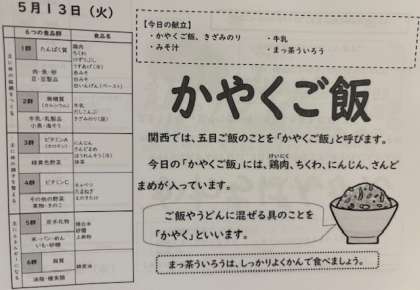 5月13日（火）
6つの食品群
食品名
1群
たんぱく質
肉・魚・卵
豆・豆製品
鶏肉
ちくわ
2群
無機質
（カルシウム）
牛乳・乳製品
小魚・海そう
牛乳
3群
ビタミンA
緑黄色野菜
にんじん
さんどまめ
抹茶
4群
ビタミンC
その他の野菜
果物・きのこ
キャベツ
たまねぎ
えのきたけ
5群
炭水化物
米・パン・めん
いも・砂糖
精白米
砂糖
上新粉
6群
脂質
油脂・種実類
綿実油
【今日の献立】
・かやくご飯、きざみのり
・牛乳
・みそ汁
・まっ茶ういろう
かやくご飯
関西では、五目ご飯のことを「かやくご飯」と呼びます。
今日の「かやくご飯」には、鶏肉、ちくわ、にんじん、さんど
けいにく
まめが入っています。
ご飯やうどんに混ぜる具のことを
「かやく」といいます。
まっ茶ういろうは、しっかりよくかんで食べましょう。